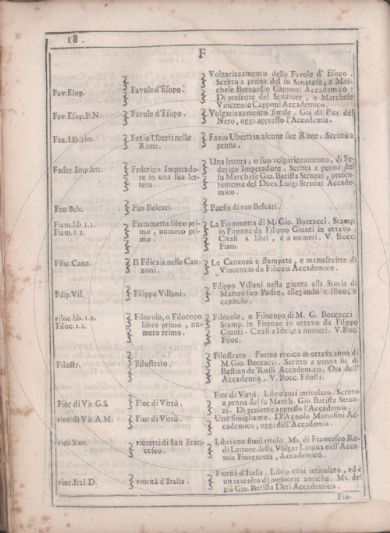 18.
F
Fav. Esop. Favole d'Esopo. Volgarizzamento delle Favole d' Esopo.
Scritto a penna del fu Senatore, e Mar-
chese Bernardin Capponi Accademico.
Di presente del Senatore, e Marchese
Vincenzio Capponi Accademico.
Fav. Esop. P. N. Favole d'Esopo. Volgarizzamento simile. Già di Pier del
Nero, oggi appresso l'Accademia.
Faz. Uberim. Fazio Uberti nelle Fazio Uberti in alcune sue Rime. Scritto a
Rime. penna.
Feder. Imp. lett. Federigo Imperado- Una lettera, o suo volgarizzamento, di Fe-
re in una sua let- derigo Imperadore. Scritta a penna del
tera. fu Marchese Gio. Batista Strozzi, presen-
temente del Duca Luigi Strozzi Accade-
mico.
Feo Belc. Feo Belcari. Poesie di Feo Belcari.
Fiam. lib. 1. 1. Fiammetta libro pri- La Fiammetta di M. Gio. Boccacci. Stamp.
Fiam. 1. 1. mo, numero pri- in Firenze da Filippo Giunti in ottavo.
mo. Citasi a libri, e a numeri. V. Bocc.
Fiam.
Filic. Canz. Il Filicaia nelle Can- Le Canzoni e stampate, e manuscritte di
zoni. Vincenzio da Filicaia Accademico.
Filip. Vill. Filippo Villani. Filippo Villani nella giunta alla Storia di
Matteo suo Padre, allegando e libro, e
capitolo.
Filoc. lib. 1. 1. Filocolo, o Filocopo Filocolo, o Filocopo di M. G. Boccacci.
Filoc. 1. 1. libro primo, nu- Stamp. in Firenze in ottavo da Filippo
mero primo. Giunti. Citasi a libri, e a numeri. V. Boc.
Filoc.
Filostr. Filostrato. Filostrato. Poema eroico in ottava rima di
M. Gio. Boccacci. Scritto a penna fu di
Bastian de' Rossi Accademico. Ora dell'
Accademia. V. Bocc. Filostr.
Fior di Vir. G. S. Fior di Virtù. Fior di Virtù. Libro così intitolato. Scritto
a penna del fu March. Gio. Batista Stroz-
zi. Di presente appresso l'Accademia.
Fior. di Vir. A. M. Fior di Virtù. Uno simigliante. D'Agnolo Monosini Ac-
cademico; oggi dell'Accademia.
Fior. S. Fr. Fioretti di San Fran- Libri con simil titolo. Ms. di Francesco Re-
cesco. di Lettore della Volgar Lingua nell'Acca-
mia Fiorentina, Accademico.
Fior. Ital. D. Fiorità d'Italia. Fiorità d'Italia. Libro così intitolato, ed è
un raccolto di memorie antiche. Ms. del
già Gio. Batista Deti Accademico.
Fio-